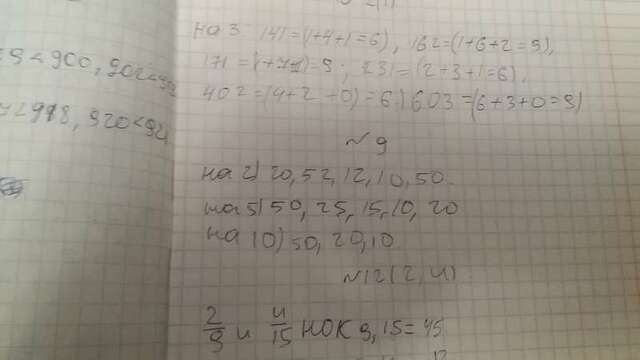 59<900, 902<92
42918, 920<92
на 3 141=(1+4+1=6), 162=(1+6+2=9),
171=(1+7+1)9. 231=(2+3+1=6),
402=(4+2+0)=6) 603=(6+3+0=9)
№9
на 2) 20,52,12,10,50.
на 5) 50,25,15,10,20
на 10) 50,20,10
№12(2,4)
2/9 и 4/15 НОК 9,15=45